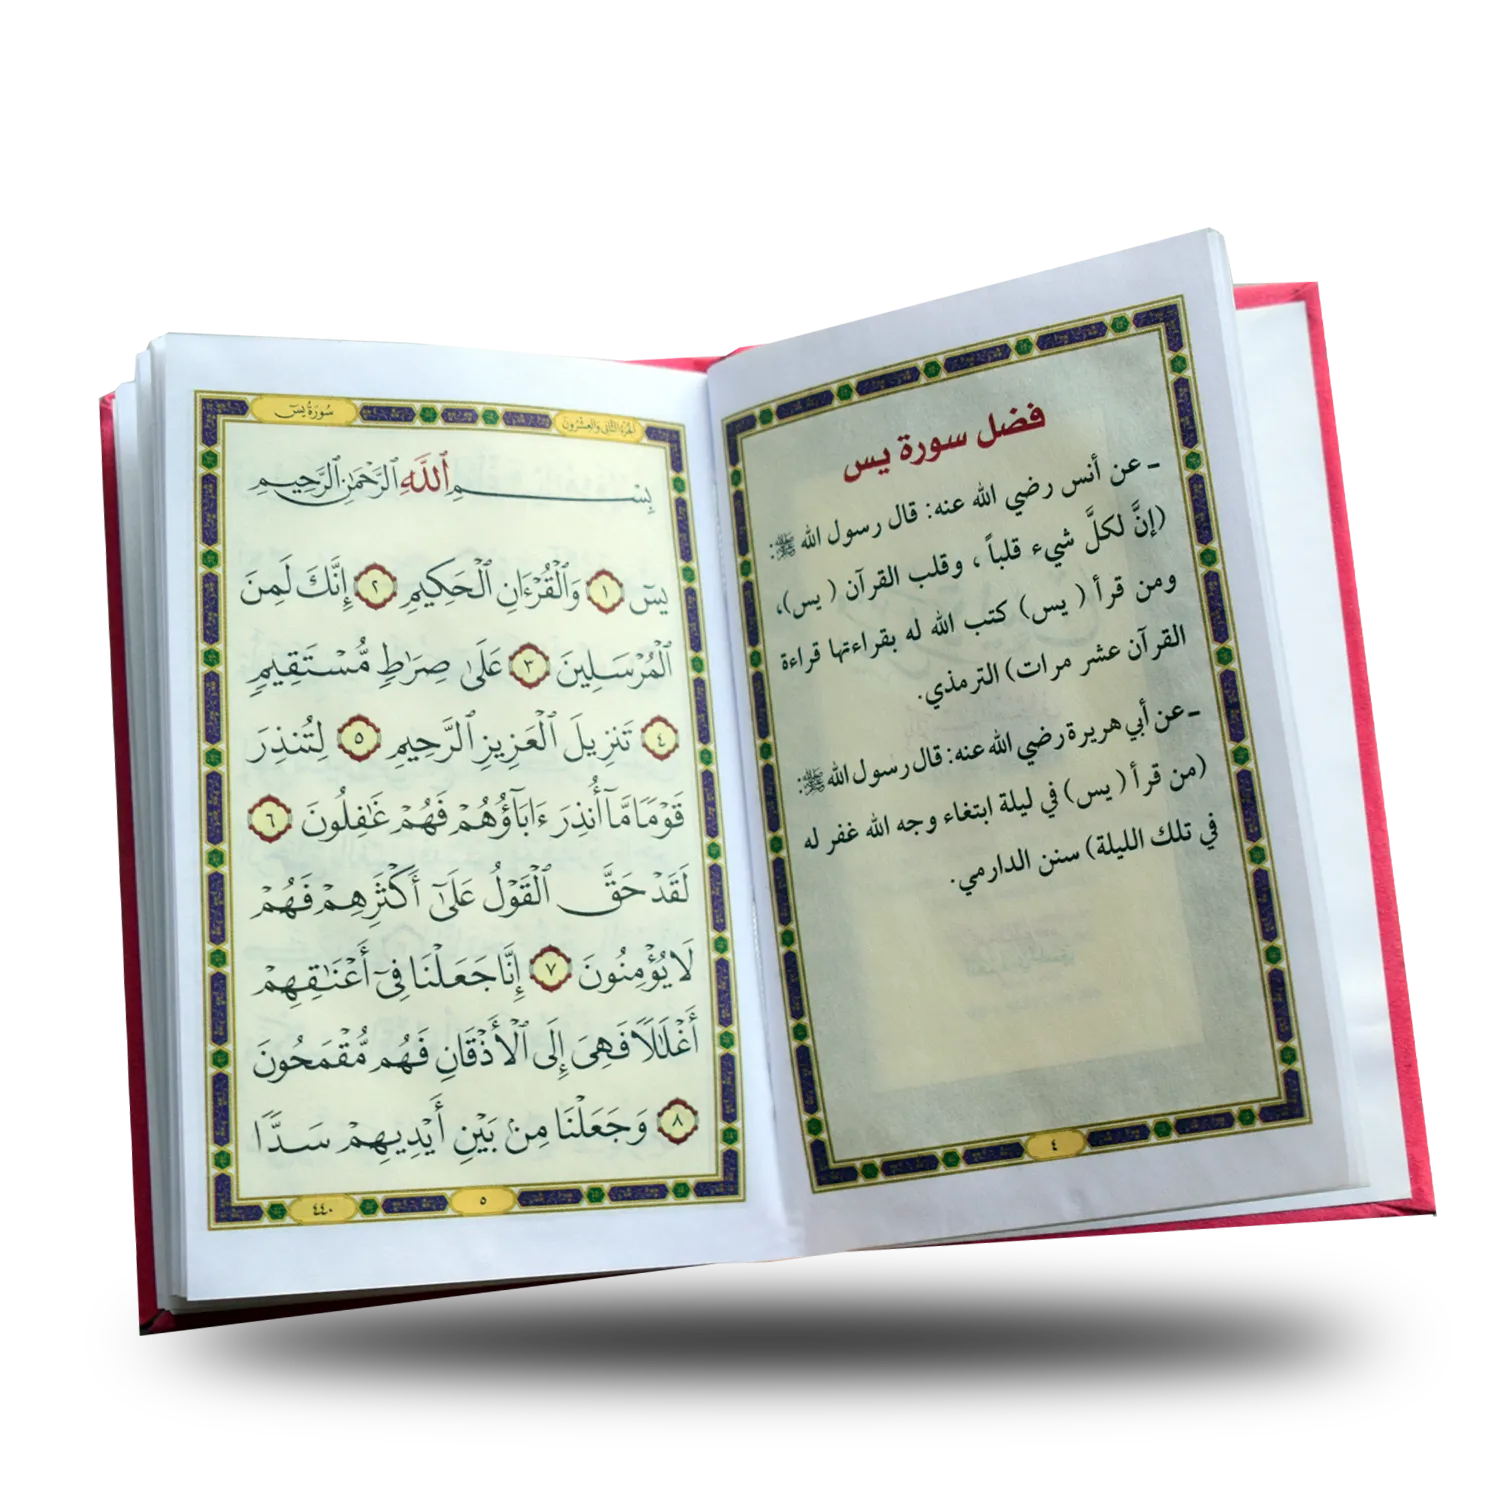 فضل سورة يس
ـ عن أنس رضي الله عنه: قال رسول الله ﷺ:
(إنَّ لكلَّ شيء قلباً ، وقلب القرآن ( يس)،
ومن قرأ ( يس) كتب الله له بقراءتها قراءة
القرآن عشر مرات) الترمذي.
ـ عن أبي هريرة رضي الله عنه: قال رسول الله ﷺ:
(من قرأ ( يس) في ليلة ابتغاء وجه الله غفر له
في تلك الليلة) سنن الدارمي.
٤
الجُزءُ الثَّانِي وَالعِشْرُونَ
سُورَةُ يسٓ
بِسْمِ ٱللَّهِ ٱلرَّحْمَٰنِ ٱلرَّحِيمِ
يسٓ ١ وَٱلْقُرْءَانِ ٱلْحَكِيمِ ٢ إِنَّكَ لَمِنَ
ٱلْمُرْسَلِينَ ٣ عَلَىٰ صِرَٰطٍ مُّسْتَقِيمٍ
٤ تَنزِيلَ ٱلْعَزِيزِ ٱلرَّحِيمِ ٥ لِتُنذِرَ
قَوْمًا مَّآ أُنذِرَ ءَابَآؤُهُمْ فَهُمْ غَٰفِلُونَ ٦
لَقَدْ حَقَّ ٱلْقَوْلُ عَلَىٰٓ أَكْثَرِهِمْ فَهُمْ
لَا يُؤْمِنُونَ ٧ إِنَّا جَعَلْنَا فِىٓ أَعْنَٰقِهِمْ
أَغْلَٰلًا فَهِىَ إِلَى ٱلْأَذْقَانِ فَهُم مُّقْمَحُونَ
٨ وَجَعَلْنَا مِنۢ بَيْنِ أَيْدِيهِمْ سَدًّا
٥
٤٤٠